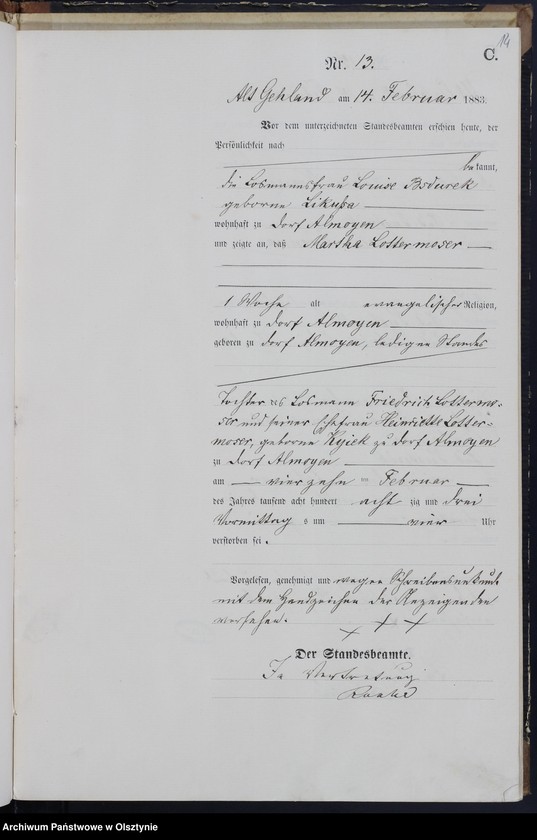 14
C.
Nr. 13.
Alt Gehland am 14. Februar 1883.
Vor dem unterzeichneten Standesbeamten erschien heute, der
Persönlichkeit nach
bekannt,
die Losmannsfrau Louise
geborne Likuba
wohnhaft zu Dorf Almoyen
und zeigte an, daß Martha Lottermoser
1 Woche alt evangelischer Religion,
wohnhaft zu Dorf Almoyen
geboren zu Dorf Almoyen, ledigen Standes
Tochter des Losmann Friedrich Lottermo-
ser und seiner Ehefrau Heinriette Lotter-
moser, geborne zu Dorf Almoyen
zu Dorf Almoyen
am vierzehn ten Februar
des Jahres tausend acht hundert acht zig und drei
Vormittags um vier Uhr
verstorben sei.
Vorgelesen, genehmigt und wegen Schreibensunkunde
mit dem Handzeichen der Anzeigenden
versehen.
+ + +
Der Standesbeamte.
In Vertretung
Archiwum Państwowe w Olsztynie